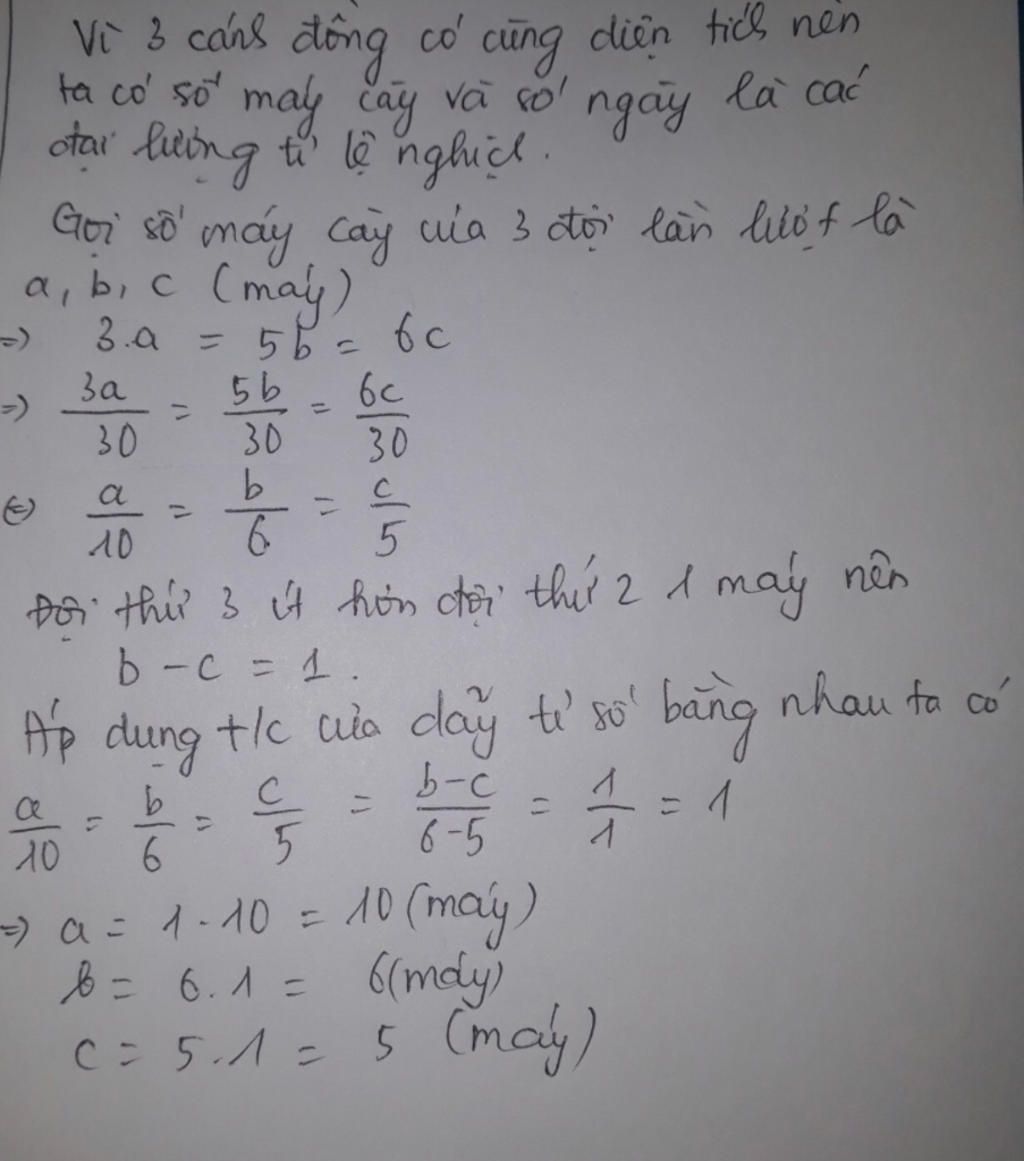 Vì 3 cánh đồng có cùng diện tích nên
ta có số máy cày và số ngày là các
đại lượng tỉ lệ nghịch.
Gọi số máy cày của 3 đội lần lượt là
a, b, c (máy)
=> 3.a = 5b = 6c
=> 3a/30 = 5b/30 = 6c/30
<=> a/10 = b/6 = c/5
Đội thứ 3 ít hơn đội thứ 2 1 máy nên
b - c = 1.
Áp dụng t/c của dãy tỉ số bằng nhau ta có
a/10 = b/6 = c/5 = b-c/6-5 = 1/1 = 1
=> a = 1.10 = 10 (máy)
b = 6.1 = 6 (máy)
c = 5.1 = 5 (máy)